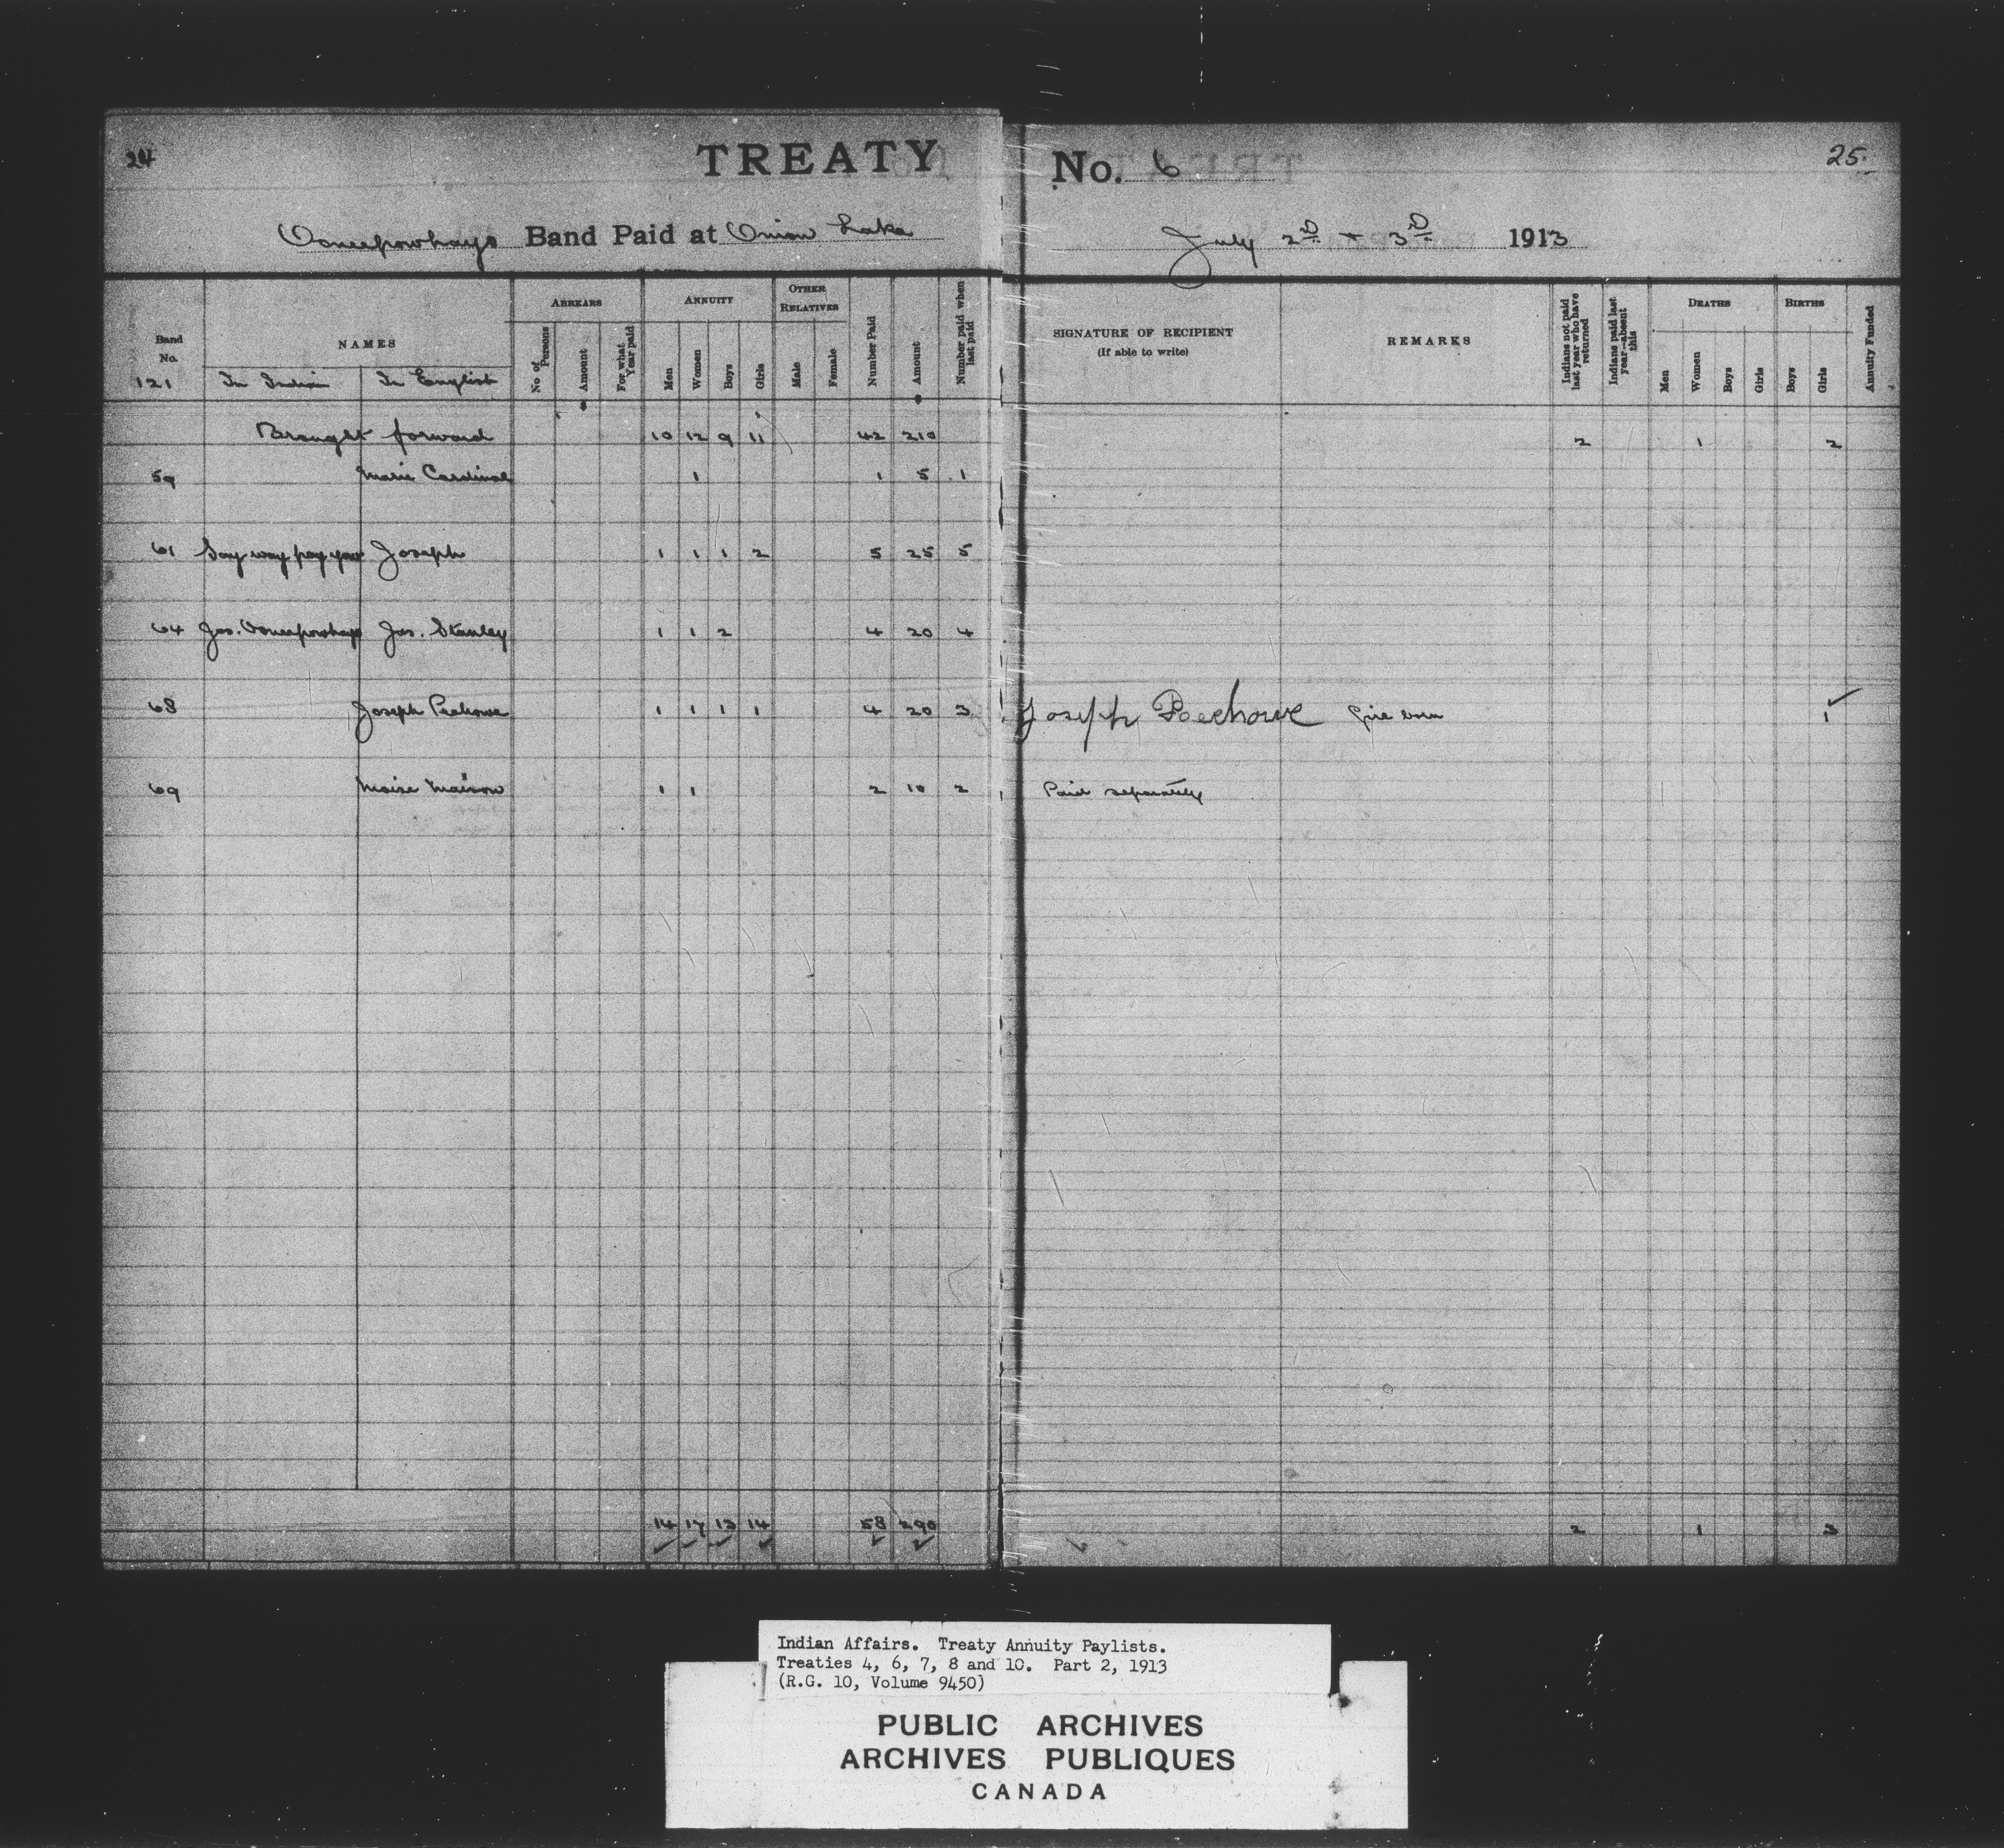 24 TREATY No. 6 25
Ooneepowhayo Band Paid at Onion Lake July 2D & 3D 1913
Band No. NAMES ARREARS ANNUITY OTHER RELATIVES Number Paid Amount Number paid when last paid SIGNATURE OF RECIPIENT (If able to write) REMARKS Indians not paid last year who have returned Indians paid last year—absent this DEATHS BIRTHS Annuity Funded
121 In Indian In English No of Persons Amount For what Year paid Men Women Boys Girls Male Female Men Women Boys Girls Boys Girls
Brought forward 10 12 9 11 42 210 2 1 2
59 Marie Cardinal 1 1 5 1
61 Say way pay yow Joseph 1 1 1 2 5 25 5
64 Jas. Ooneepowhayo Jas. Stanley 1 1 2 4 20 4
68 Joseph Peechowe 1 1 1 1 4 20 3 Joseph Peechowe Girl born 1
69 Moise 1 1 2 10 2 Paid separately
14 17 13 14 58 290 2 1 3
Indian Affairs. Treaty Annuity Paylists.
Treaties 4, 6, 7, 8 and 10. Part 2, 1913
(R.G. 10, Volume 9450)
PUBLIC ARCHIVES
ARCHIVES PUBLIQUES
CANADA